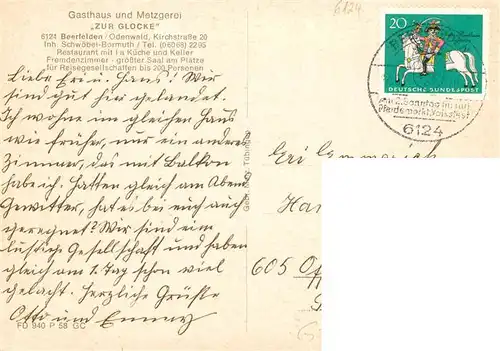 6124
Gasthaus und Metzgerei
„ZUR GLOCKE"
6124 Beerfelden / Odenwald, Kirchstraße 20
Inh. Schwöbel-Bormuth / Tel. (06068) 2295
Restaurant mit I a Küche und Keller
Fremdenzimmer - größter Saal am Platze
für Reisegesellschaften bis 200 Personen
Liebe Eri u. Hans! Wir
sind gut hier gelandet.
Ich wohne im gleichen Haus
wie früher, nur ein andere
Zimmer, das mit Balkon
habe ich. Hatten gleich am Abend
Gewitter, hat es bei euch auch
geregnet? Wir sind eim
lustige Gesellschaft und haben
gleich am 1. Tag schon viel
gelacht. Herzliche Grüße
Otto und Emmy
FD 940 P 58 GC
Tübingen
20
DEUTSCHE BUNDESPOST
Pferdemarkt
6124
Eri
Han
605 Of